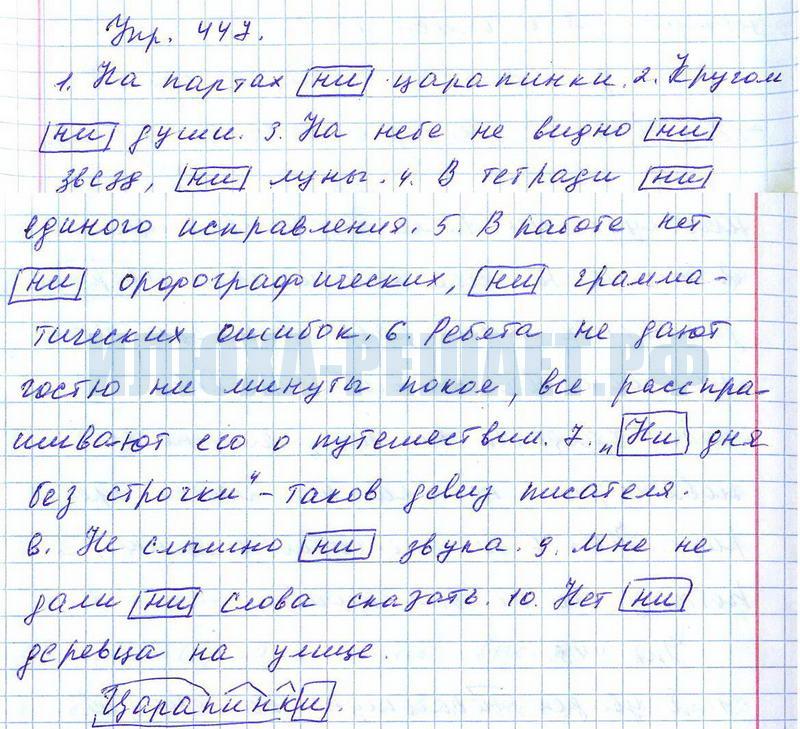 Упр. 447.
1. На партах ни царапинки. 2. Кругом
ни души. 3. На небе не видно ни
звезд, ни луны. 4. В тетради ни
единого исправления. 5. В работе нет
ни орфографических, ни грамма-
тических ошибок. 6. Ребята не дают
гостю ни минуты покоя, все расспра-
шивают его о путешествии. 7. „Ни дня
без строчки“ - таков девиз писателя.
8. Не слышно ни звука. 9. Мне не
дали ни слова сказать. 10. Нет ни
деревца на улице.
Царапинки.
ИЛЮХА-РЕШАЕТ.РФ